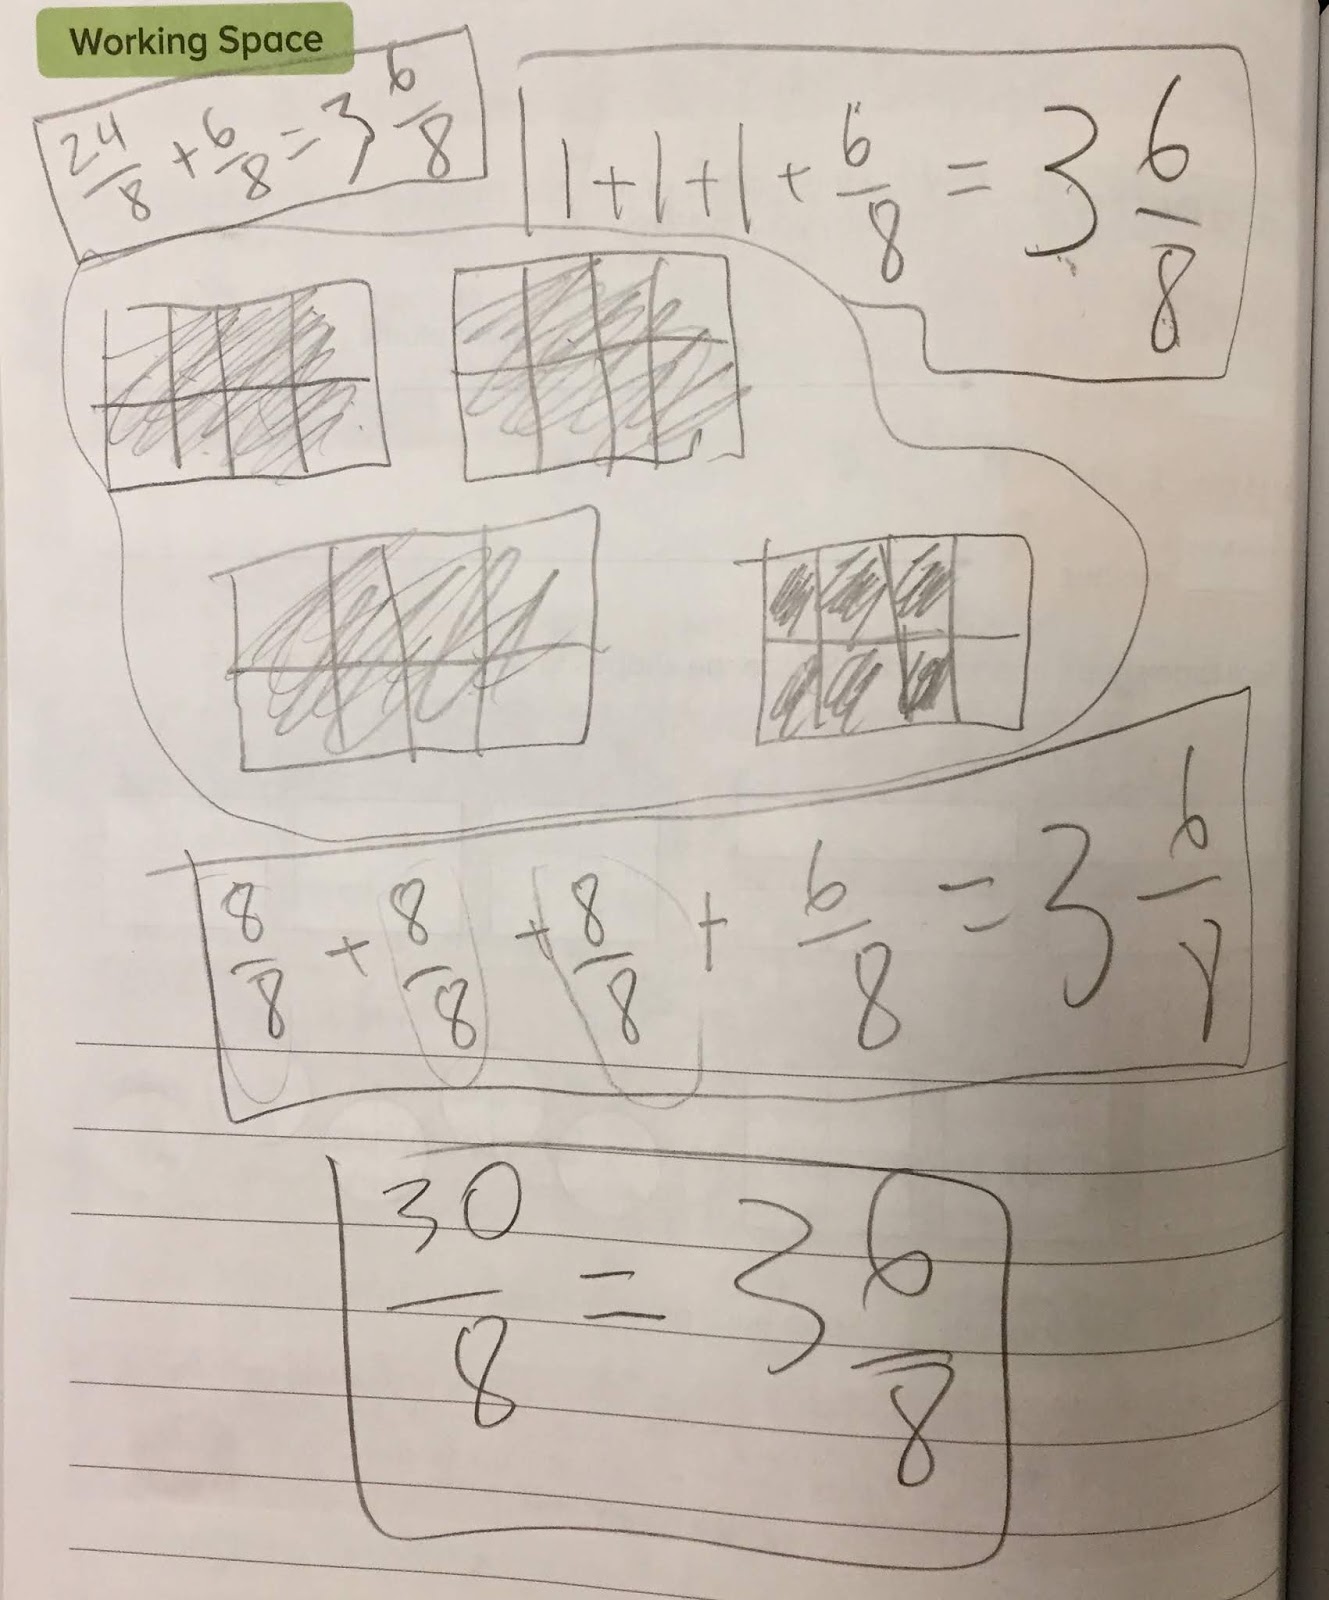 Working Space
24/8 + 6/8 = 3 6/8
1 + 1 + 1 + 6/8 = 3 6/8
8/8 + 8/8 + 8/8 + 6/8 = 3 6/8
30/8 = 3 6/8